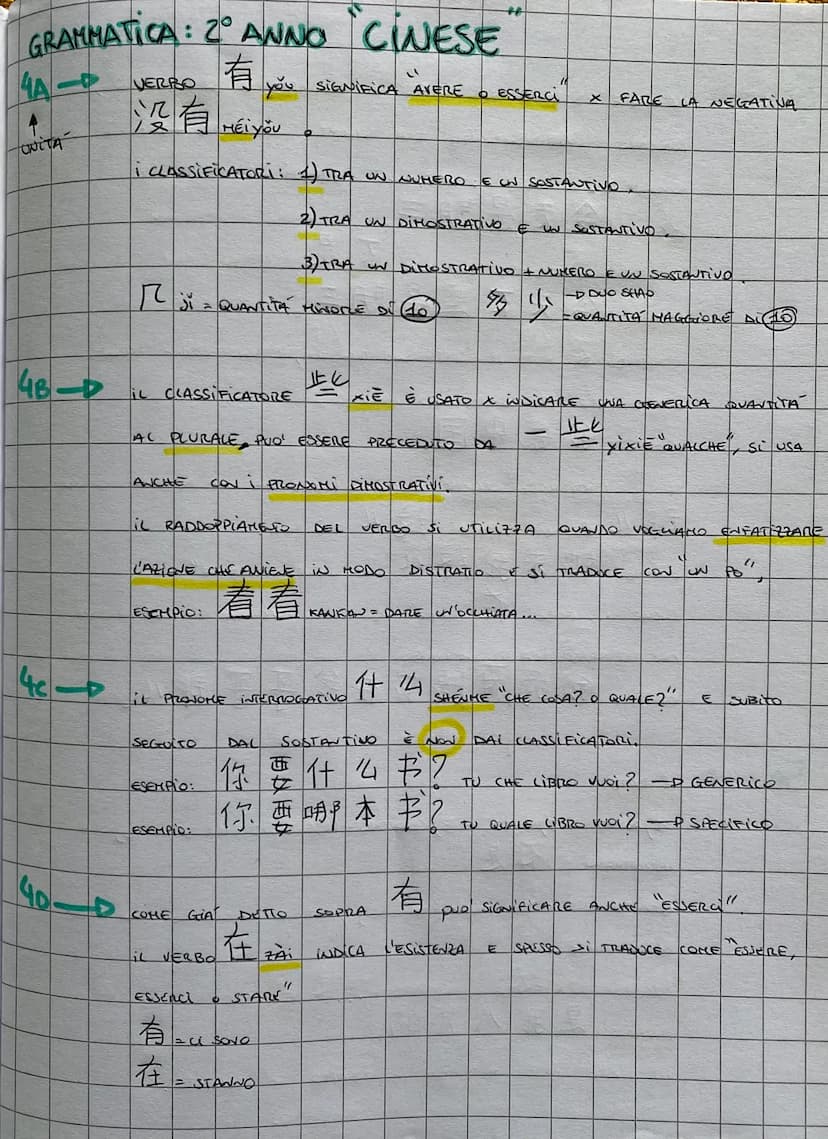 GRAMMATICA: 2° ANNO "CINESE"
4A → VERBO 有 yǒu SIGNIFICA "AVERE O ESSERCI" x FARE LA NEGATIVA
UNITÀ
没有 MÉIyǒu.
i CLASSIFICATORI: 1) TRA UN NUMERO E UN SOSTANTIVO.
2) TRA UN DIMOSTRATIVO E UN SOSTANTIVO.
3) TRA UN DIMOSTRATIVO + NUMERO E UN SOSTANTIVO.
几 jǐ = QUANTITÀ MINORE DI 10 多少 → DUO SHAO
= QUANTITÀ MAGGIORE DI 10
4B → iL CLASSIFICATORE 些 XIĒ È USATO x INDICARE UNA GENERICA QUANTITÀ
AL PLURALE, PUO' ESSERE PRECEDUTO DA 一些 yìxiē "QUALCHE", SI USA
ANCHE CON i PRONOMI DIMOSTRATIVI.
iL RADDOPPIAMENTO DEL VERBO Si UTILIZZA QUANDO VOGLIAMO ENFATIZZARE
L'AZIONE CHE AVIENE IN MODO DISTRATIO E Si TRADUCE CON "UN PO'",
ESEMPIO: 看看 KANKAN = DARE UN'OCCHIATA...
4C → iL PRONOME INTERROGATIVO 什么 SHÉNME "CHE COSA? O QUALE?" E SUBITO
SEGUITO DAL SOSTANTIVO È NON DAI CLASSIFICATORI.
ESEMPIO: 你要什么书? TU CHE LIBRO VUOI? → GENERICO
ESEMPIO: 你要哪本书? TU QUALE LIBRO VUOI? → SPECIFICO
4D → COME GIA' DETTO SOPRA 有 PUO' SIGNIFICARE ANCHE "ESSERCI".
iL VERBO 在 ZÀI INDICA L'ESISTENZA E SPESSO Si TRADUCE COME "ESSERE,
ESSERCI O STARE"
有 = CI SONO
在 = STANNO